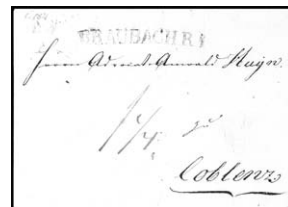 BRAUBACH R
Herrn Advocat-Anwald Hayn
zu
Coblenz